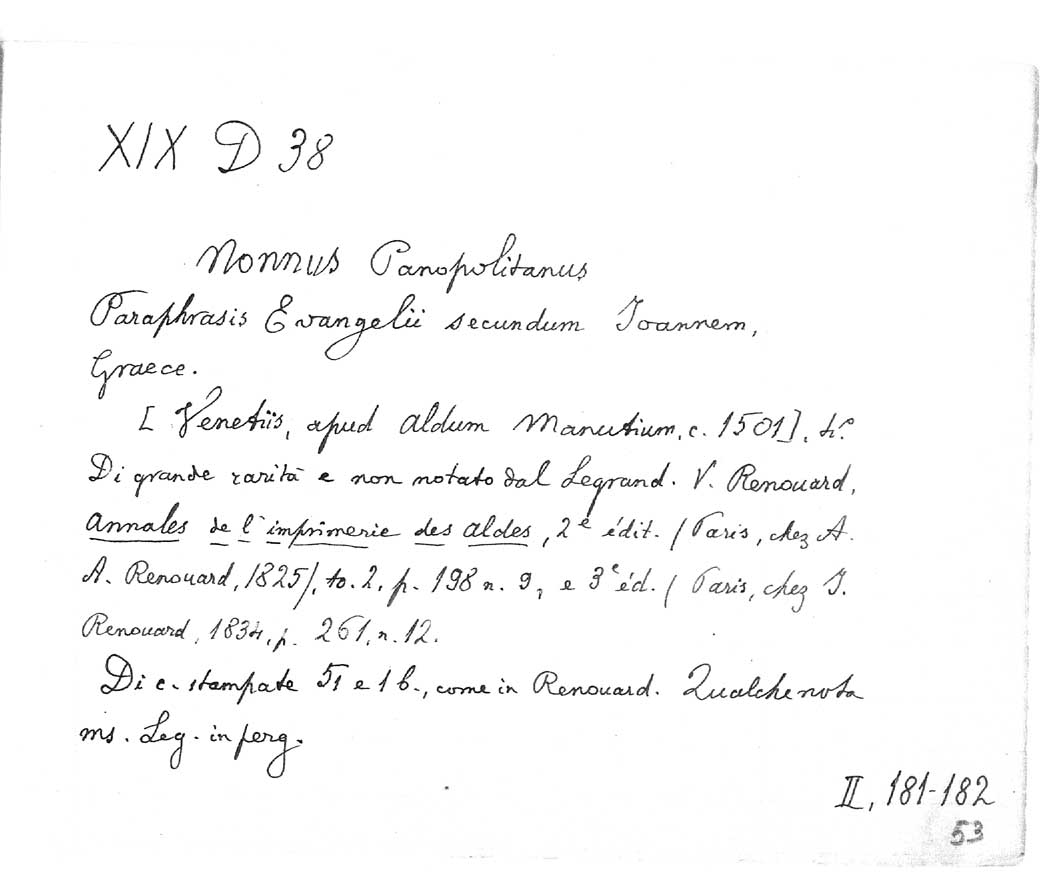 XIX D 38
Nonnus Panopolitanus
Paraphrasis Evangelii secundum Joannem,
Graece.
[Venetiis, apud Aldum Manutium, c. 1501], 4°.
Di grande rarità e non notato dal Legrand. V. Renouard,
Annales de l'imprimerie des Aldes, 2e édit. (Paris, chez A.
A. Renouard, 1825), to. 2, p. 198 n. 9, e 3e éd. (Paris, chez J.
Renouard, 1834, p. 261, n. 12.
Di c. stampate 51 e 1 b., come in Renouard. Qualche nota
ms. Leg. in perg.
II, 181-182
53